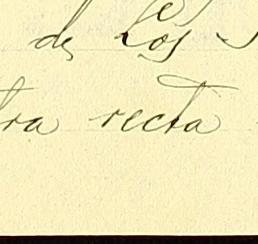 de los
tra recta